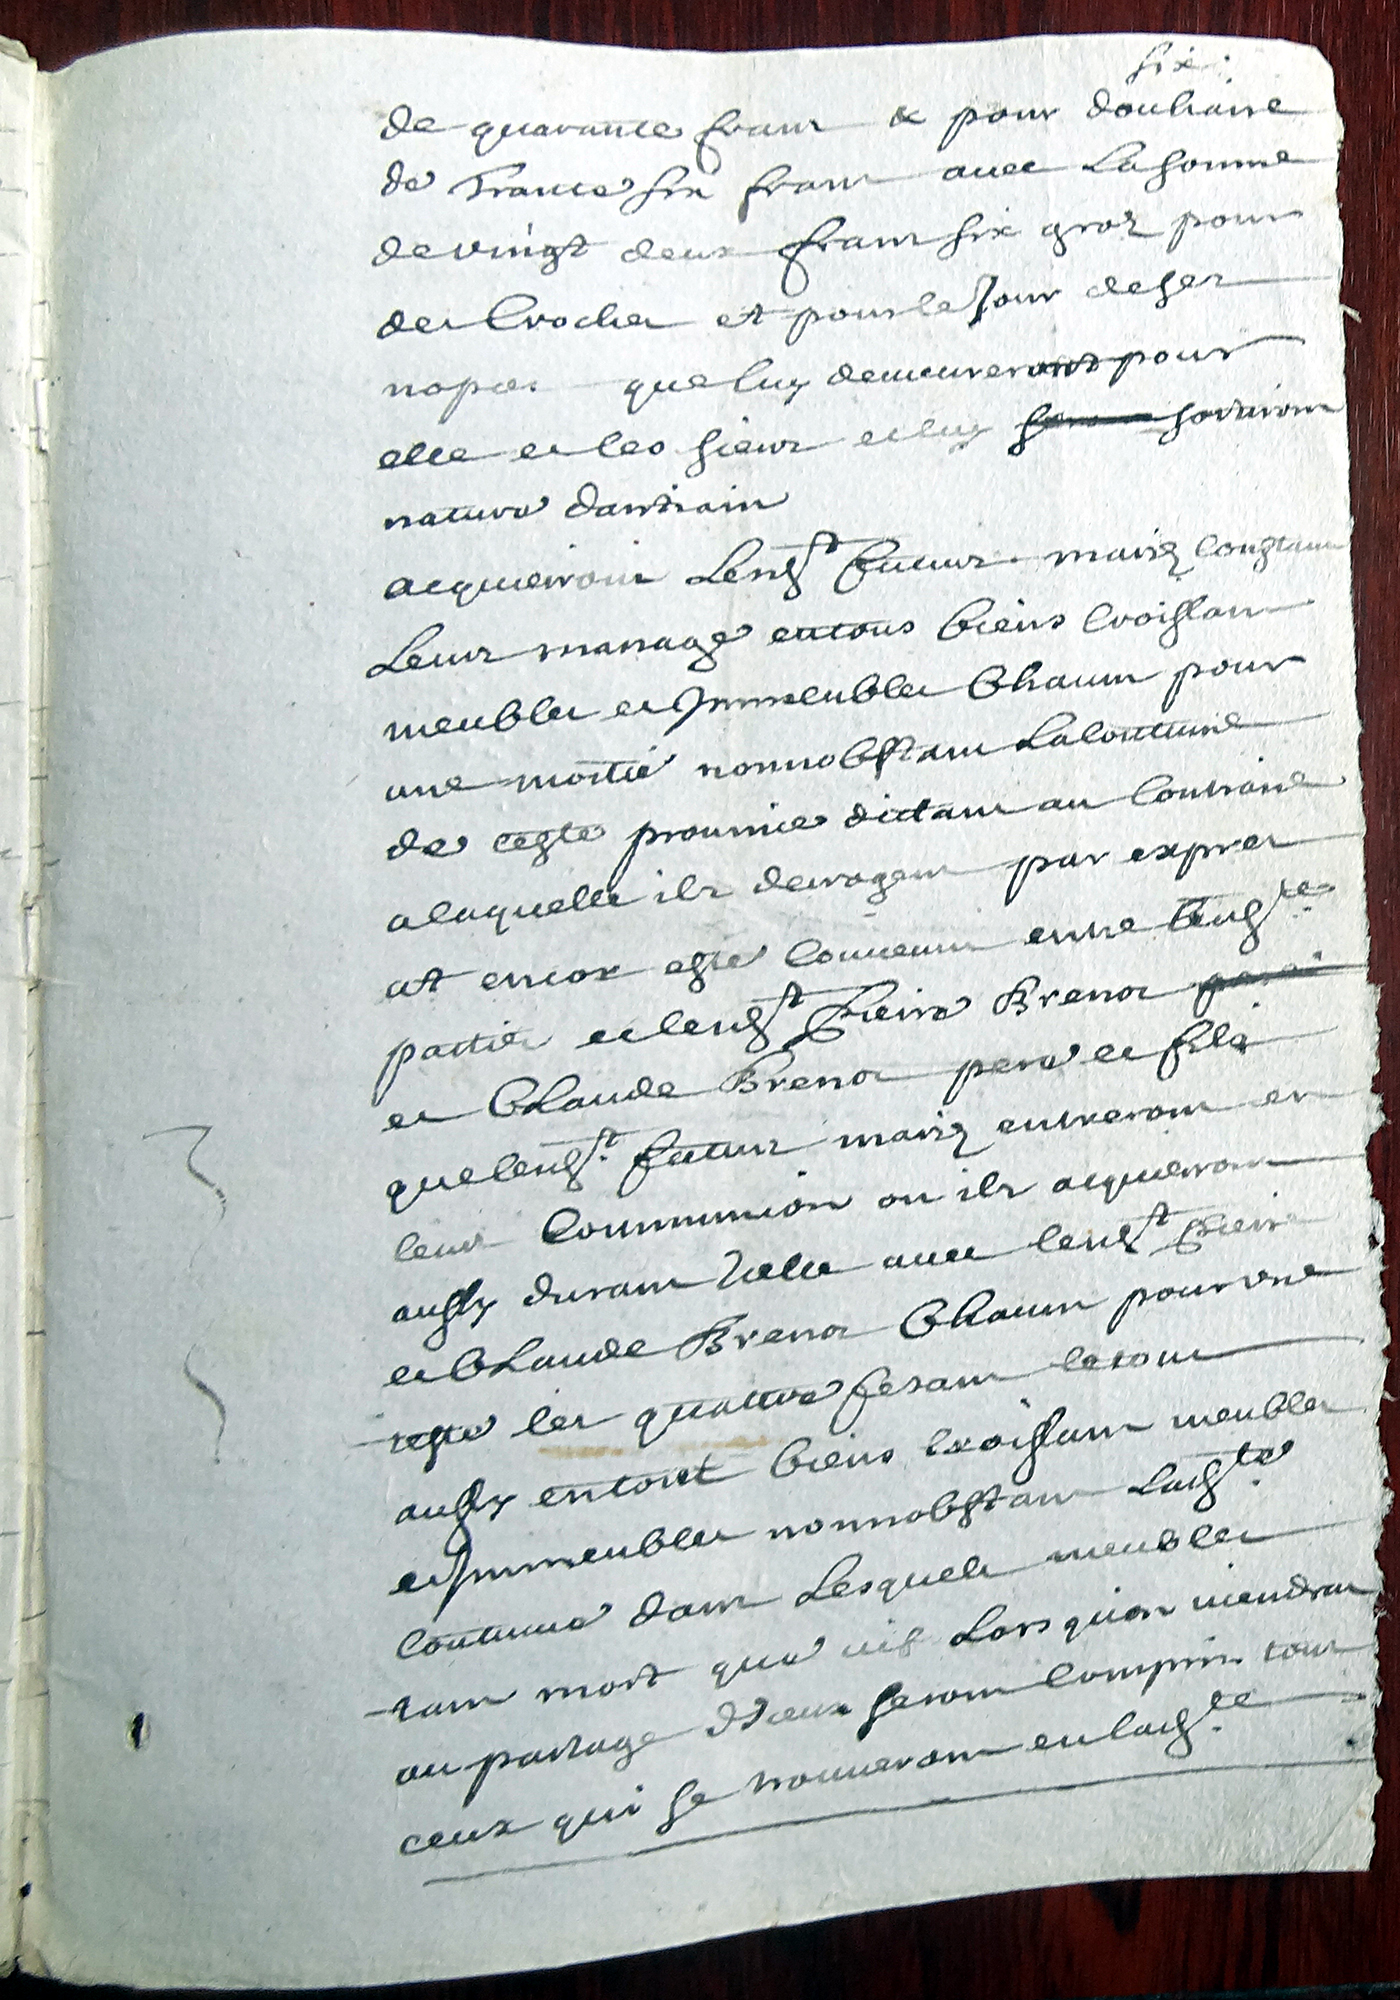 six
de quarante franc & pour douhaire
de trante six franc avec la somme
de vingt deux franc six groz pour
des troches et pour le Jour de ses
nopces que luy demeureront pour
elle et les sieurs et luy sortiront
nature dantrain
acqueiront lesdst futurs mariez constant
leur mariage en tous biens croissans
meubles et Immeubles Chacun pour
une moitié nonnobstant la coutume
de ceste province dictant au contraire
a laquelle ilz derogent par exprez
at encor esté convenu entre lesdste
parties et lesdst Pierre Brenot
et Claude Brenot pere et filz
que lesdst futurs mariez entreront en
leur Communion ou ilz acqueiront
aussy durant Icelle avec lesdst Pierre
et Claude Brenot Chacun pour une
teste les quattre fesant le tout
aussy en tout biens croissant meubles
et Immeubles nonnobstant ladste
Coutume dans lesquels meubles
tant mort que vif lors quon viendrat
au partage d'Iceux seront compris tout
ceux qui se trouveront en ladste